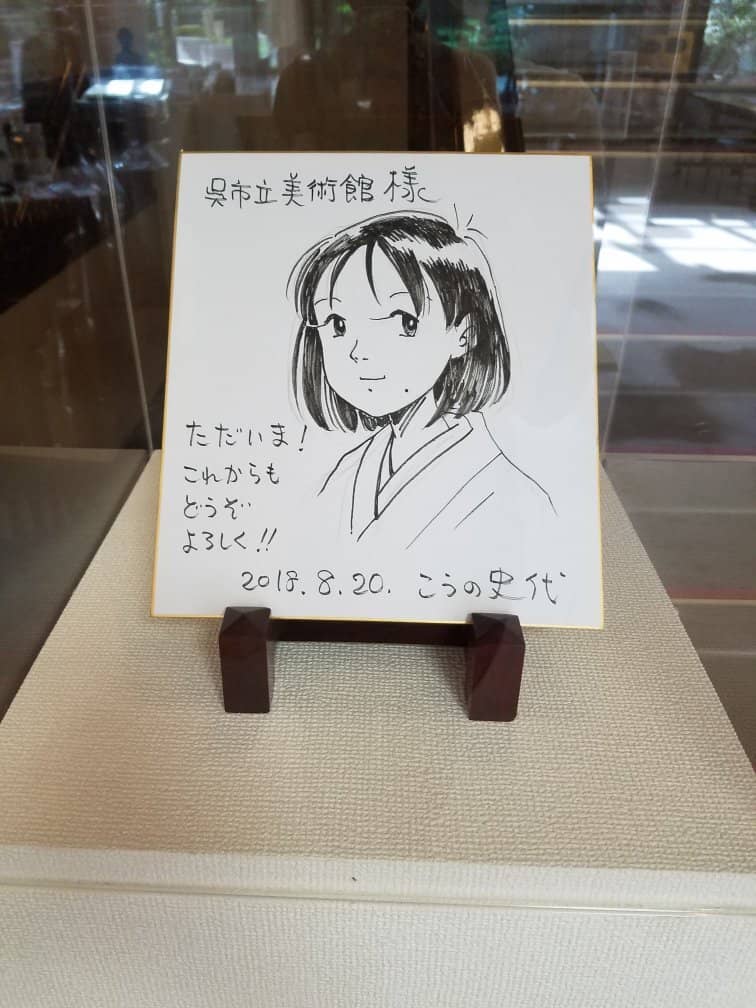 呉市立美術館様
ただいま!
これからも
どうぞ
よろしく!!
2018.8.20. こうの史代